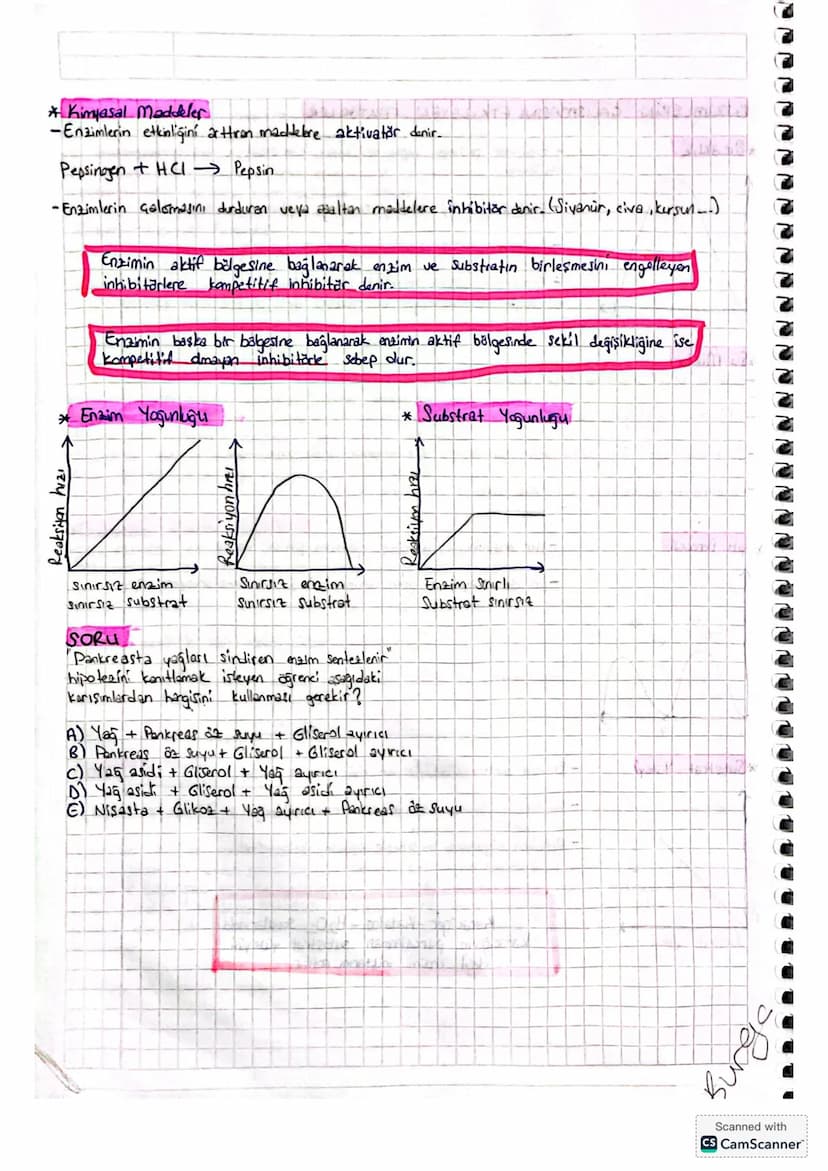 * Kimyasal Maddeler
- Enzimlerin etkinliğini arttıran maddelere aktivatör denir.
Pepsinogen + HCl → Pepsin
- Enzimlerin çalışmasını durduran veya azaltan maddelere inhibitör denir. (Siyanür, civa, kurşun...)
Enzimin aktif bölgesine bağlanarak enzim ve substratın birleşmesini engelleyen
inhibitörlere kompetitif inhibitör denir.
Enzimin başka bir bölgesine bağlanarak enzimin aktif bölgesinde şekil değişikliğine ise
kompetitif olmayan inhibitörle sebep olur.
* Enzim Yoğunluğu
* Substrat Yoğunluğu
Reaksiyon hızı
Reaksiyon hızı
Reaksiyon hızı
sınırsız enzim
sınırsız substrat
Sınırsız enzim
Sınırsız substrat
Enzim sınırlı
Substrat sınırsız
SORU
"Pankreasta yağları sindiren enzim sentezlenir"
hipotezini kanıtlamak isteyen öğrenci aşağıdaki
karışımlardan hangisini kullanması gerekir?
A) Yağ + Pankreas öz suyu + Gliserol ayırıcı
B) Pankreas öz suyu + Gliserol + Gliserol ayırıcı
C) Yağ asidi + Gliserol + Yağ ayırıcı
D) Yağ asidi + Gliserol + Yağ asidi ayırıcı
E) Nişasta + Glikoz + Yağ ayırıcı + Pankreas öz suyu
Scanned with
CS CamScanner